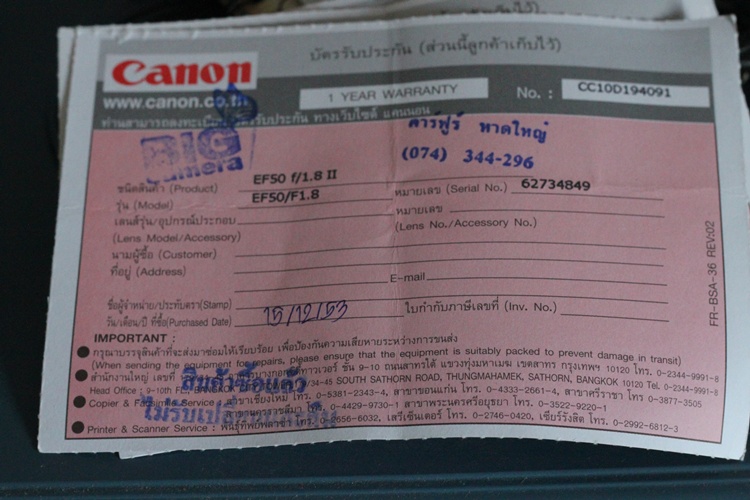 บัตรรับประกัน (ส่วนนี้ลูกค้าเก็บไว้)
Canon
www.canon.co.th
1 YEAR WARRANTY
No. : CC10D194091
ท่านสามารถลงทะเบียนบัตรรับประกัน ทางเว็บไซต์ แคนนอน
BIG Camera
คาร์ฟูร์ หาดใหญ่
(074) 344-296
ชนิดสินค้า (Product) EF50 f/1.8 II
รุ่น (Model) EF50/F1.8
หมายเลข (Serial No.) 62734849
เลนส์รุ่น/อุปกรณ์ประกอบ
(Lens Model/Accessory)
หมายเลข
(Lens No./Accessory No.)
นามผู้ซื้อ (Customer)
ที่อยู่ (Address)
E-mail
ชื่อผู้จำหน่าย/ประทับตรา(Stamp)
วัน/เดือน/ปี ที่ซื้อ(Purchased Date) 15/12/53
ใบกำกับภาษีเลขที่ (Inv. No.)
FR-BSA-36 REV:02
IMPORTANT :
กรุณาบรรจุสินค้าที่จะส่งมาซ่อมให้เรียบร้อย เพื่อป้องกันความเสียหายระหว่างการขนส่ง
(When sending the equipment for repairs, please ensure that the equipment is suitably packed to prevent damage in transit)
สำนักงานใหญ่ เลขที่ ชั้น 9-10 ถนนสาทรใต้ แขวงทุ่งมหาเมฆ เขตสาทร กรุงเทพฯ 10120 โทร. 0-2344-9991-8
Head Office : 9-10th FL., BANGKOK /34-45 SOUTH SATHORN ROAD, THUNGMAHAMEK, SATHORN, BANGKOK 10120 Tel. 0-2344-9991-8
Copier & Facsimile Service : สาขาเชียงใหม่ โทร. 0-5381-2343-4, สาขาขอนแก่น โทร. 0-4333-2661-4, สาขาศรีราชา โทร. 0-3877-3505
โทร. 0-4429-9730-1 สาขาพระนครศรีอยุธยา โทร. 0-3522-9220-1
Printer & Scanner Service : พันธุ์ทิพย์พลาซ่า โทร. 0-2656-6032, เสรีเซ็นเตอร์ โทร. 0-2746-0420, เซียร์รังสิต โทร. 0-2992-6812-3
สินค้าซื้อแล้ว